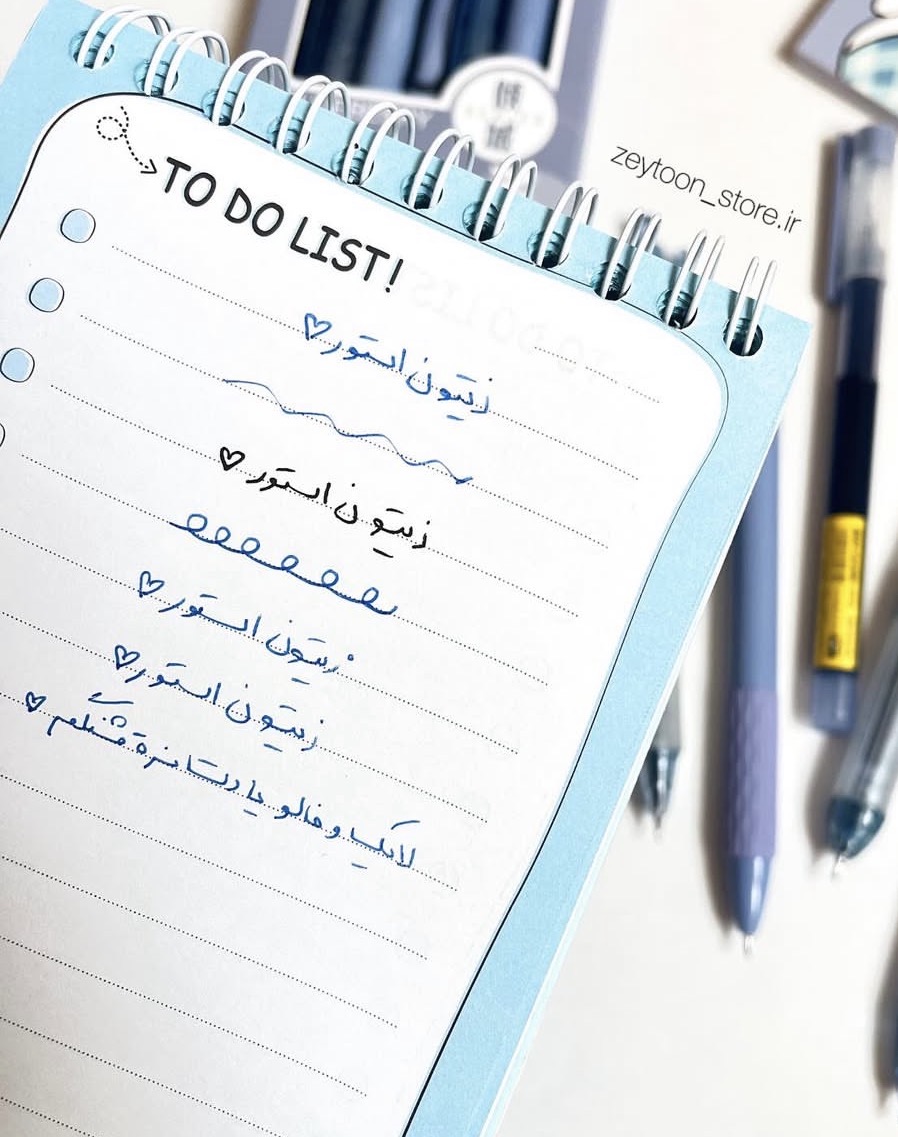 zeytoon_store.ir
TO DO LIST!
زیتون استور♡
زیتون استور♡
زیتون استور♡
زیتون استور♡
لایک و فالو یادت نره قشنگم♡